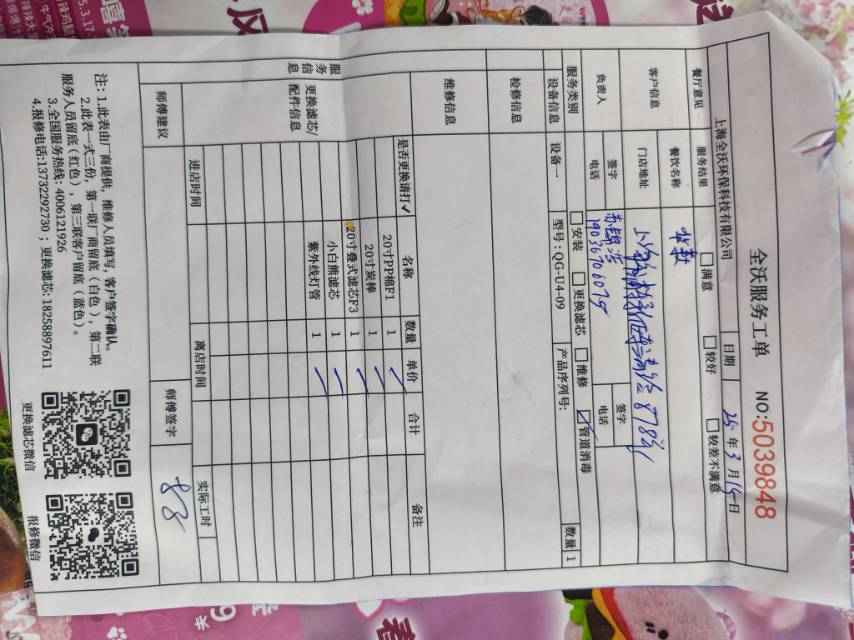 全沃服务工单 NO:5039848
上海全沃环保科技有限公司 日期 25年3月19日
餐厅意见 服务结果 满意 较好 较差不满意
客户信息 餐饮名称
门店地址 878号
负责人 签字 签字
电话 19036706079 电话
服务类别 安装 更换滤芯 维修 管道消毒
设备信息 设备一 型号：QG-U4-09 产品序列号： 数量 1
检修信息
维修信息
服务信息
更换滤芯/配件信息
是否更换请打✓ 名称 数量 单价 合计 备注
20寸PP棉F1 1
20寸炭棒 1
20寸叠式滤芯F3 1
小白熊滤芯 1
紫外线灯管 1
进店时间 离店时间 实际工时
师傅建议 师傅签字
注：1.此表由厂商提供，维修人员填写，客户签字确认。
2.此表一式三份，第一联厂商留底（白色），第二联
服务人员留底(红色)，第三联客户留底（蓝色）。
3.全国服务热线：4006121926
4.报修电话:13732292730；更换滤芯: 18258897611
更换滤芯微信 报修微信